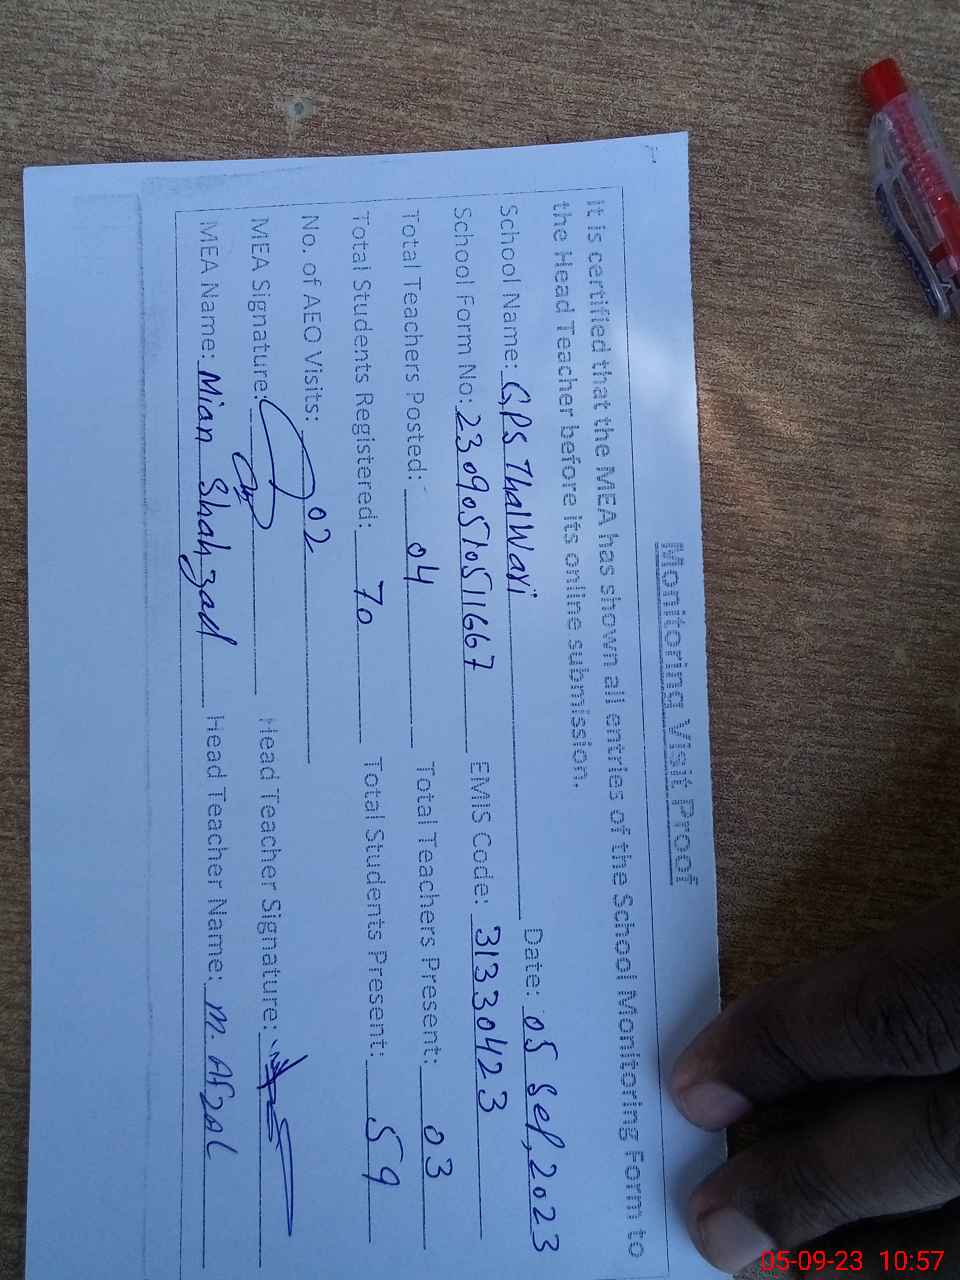 Monitoring Visit Proof
It is certified that the MEA has shown all entries of the School Monitoring Form to
the Head Teacher before its online submission.
School Name: GPS Thal Wari Date: 05 Sep, 2023
School Form No: 23090510511667 EMIS Code: 31330423
Total Teachers Posted: 04 Total Teachers Present: 03
Total Students Registered: 70 Total Students Present: 59
No. of AEO Visits: 02
MEA Signature: Head Teacher Signature:
MEA Name: Mian Shahzad Head Teacher Name: M. Afzal
05-09-23 10:57